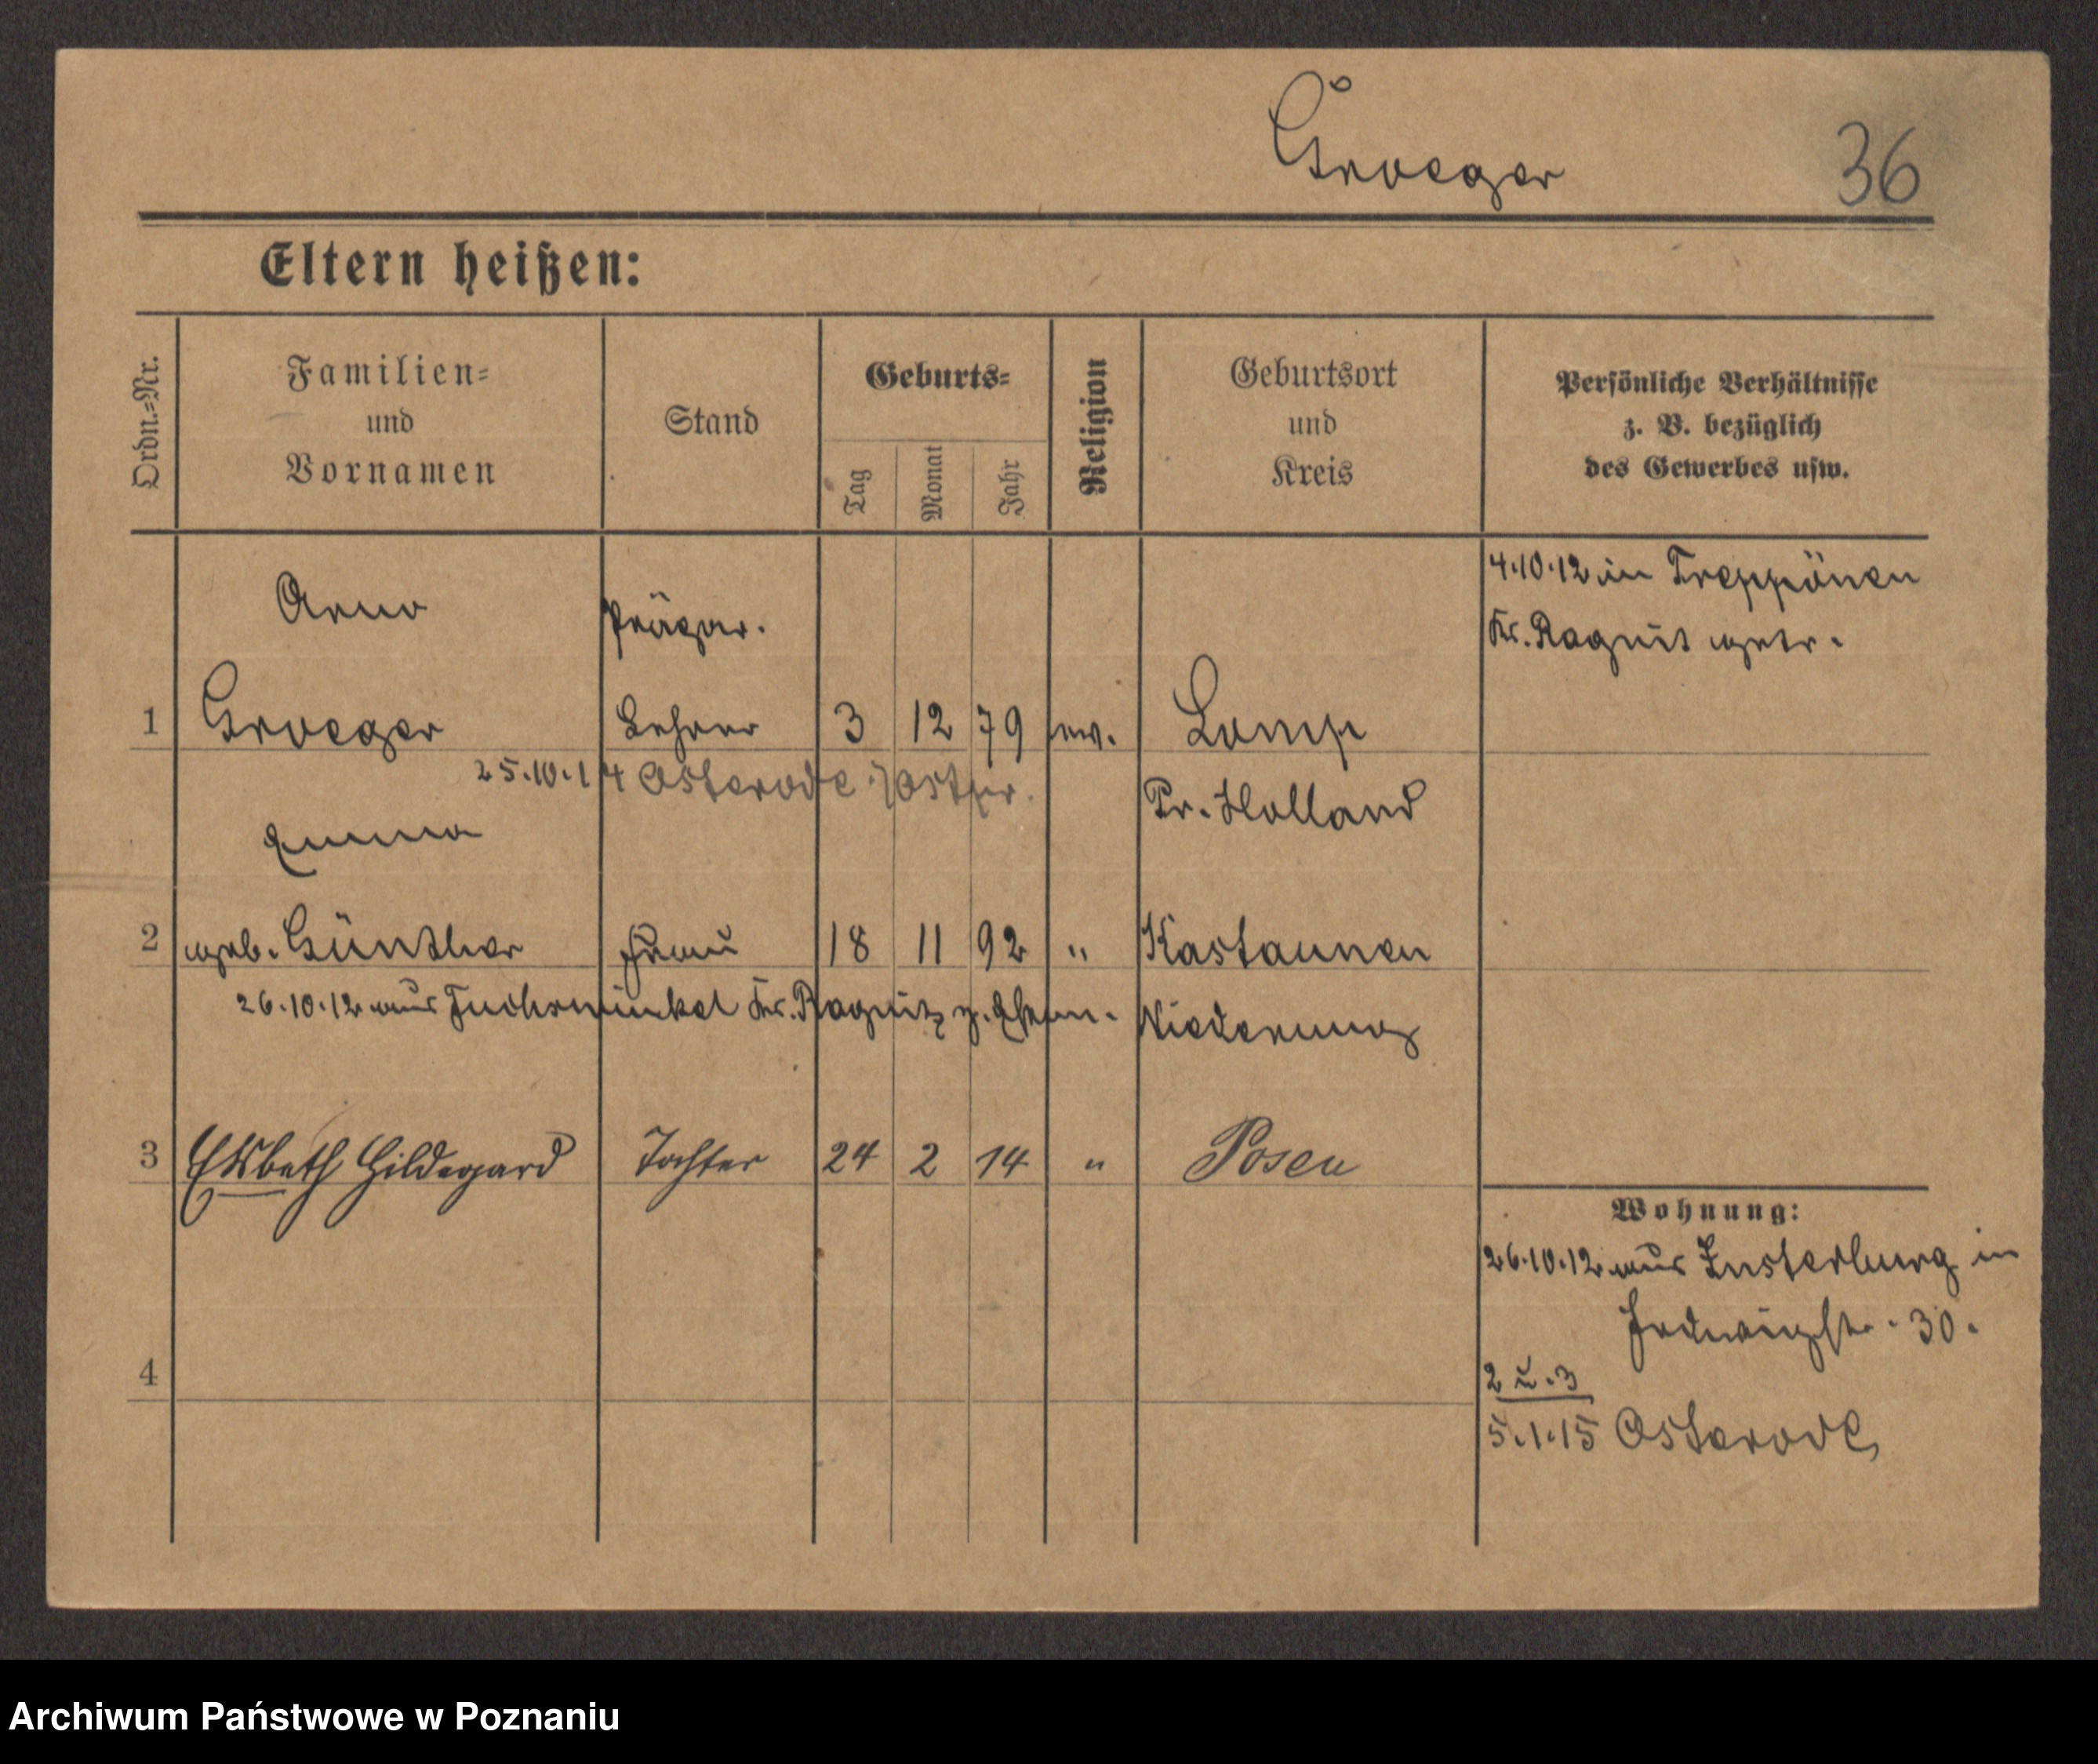 Groeger
36
Eltern heißen:
Ordn.=Nr.
Familien=
und
Vornamen
Stand
Geburts=
Tag
Monat
Jahr
Religion
Geburtsort
und
Kreis
Persönliche Verhältnisse
z. B. bezüglich
des Gewerbes usw.
4.10.12 in Treppönen
Kr. Ragnit getr.
Arno
1 Groeger Lehrer 3 12 79 ev. Lomp
25.10.14 Osterode Ostpr.
Pr. Holland
Emma
2 geb. Günther Frau 18 11 92 " Kastaunen
26.10.12 aus Kr. Ragnit z. Ehem.
Niederung
3 Elsbeth Hildegard Tochter 24 2 14 " Posen
Wohnung:
26.10.12 aus Insterburg in
Hedwigstr. 30.
4
2 u. 3
5.1.15 Osterode
Archiwum Państwowe w Poznaniu